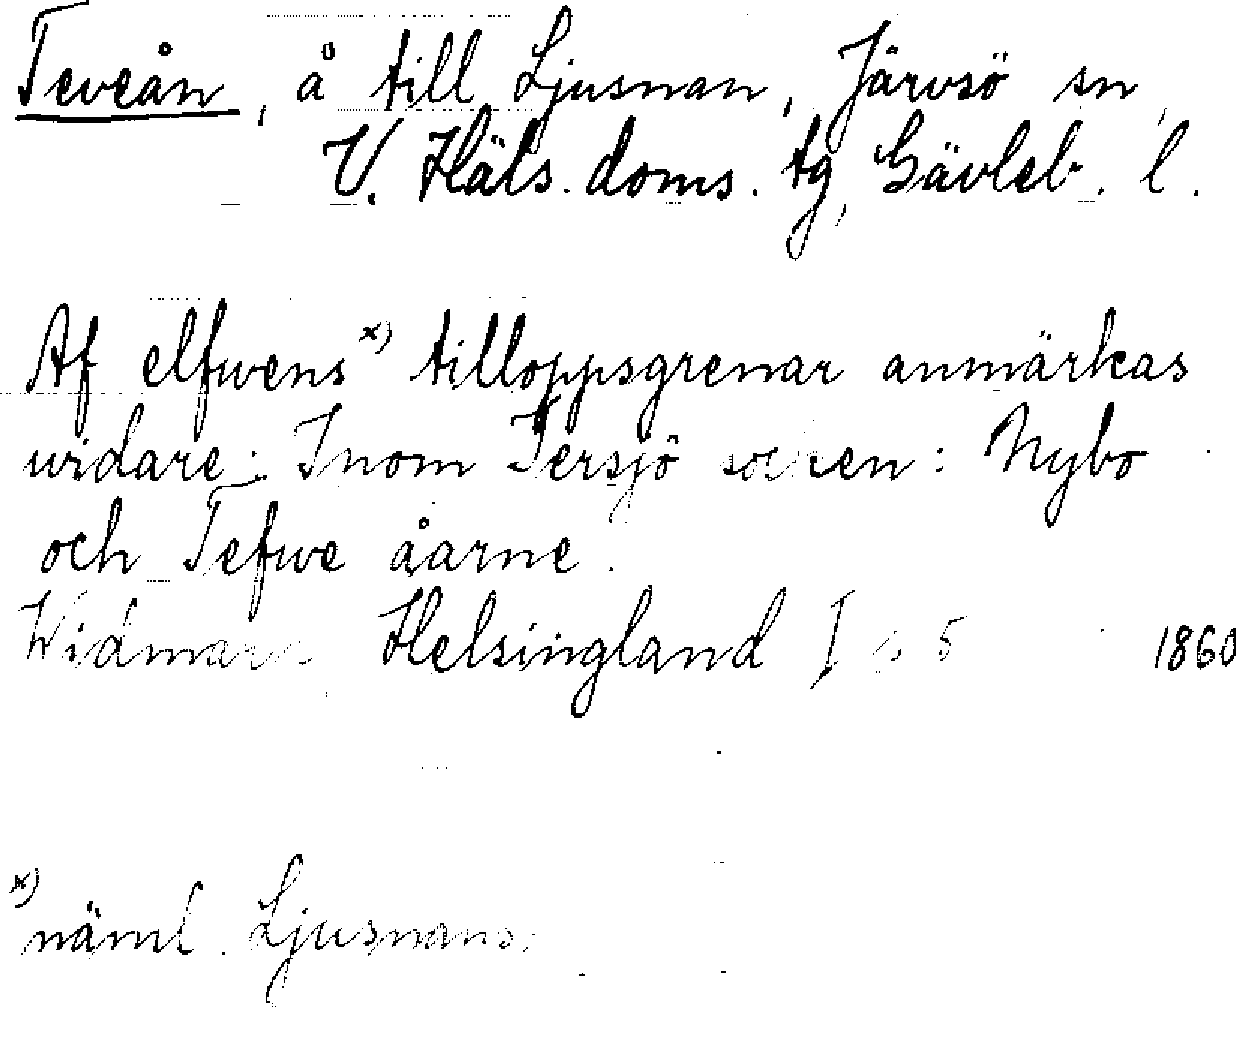 Teveån, å till Ljusnan, Järvsö sn,
V. Häls. doms. tg, Gävleb. l.
Af elfwens x) tilloppsgrenar anmärkas
widare: Inom Fersjö socken: Nybo
och Tefwe åarne.
Widmark Helsingland I s 5 1860
x) näml. Ljusnans.